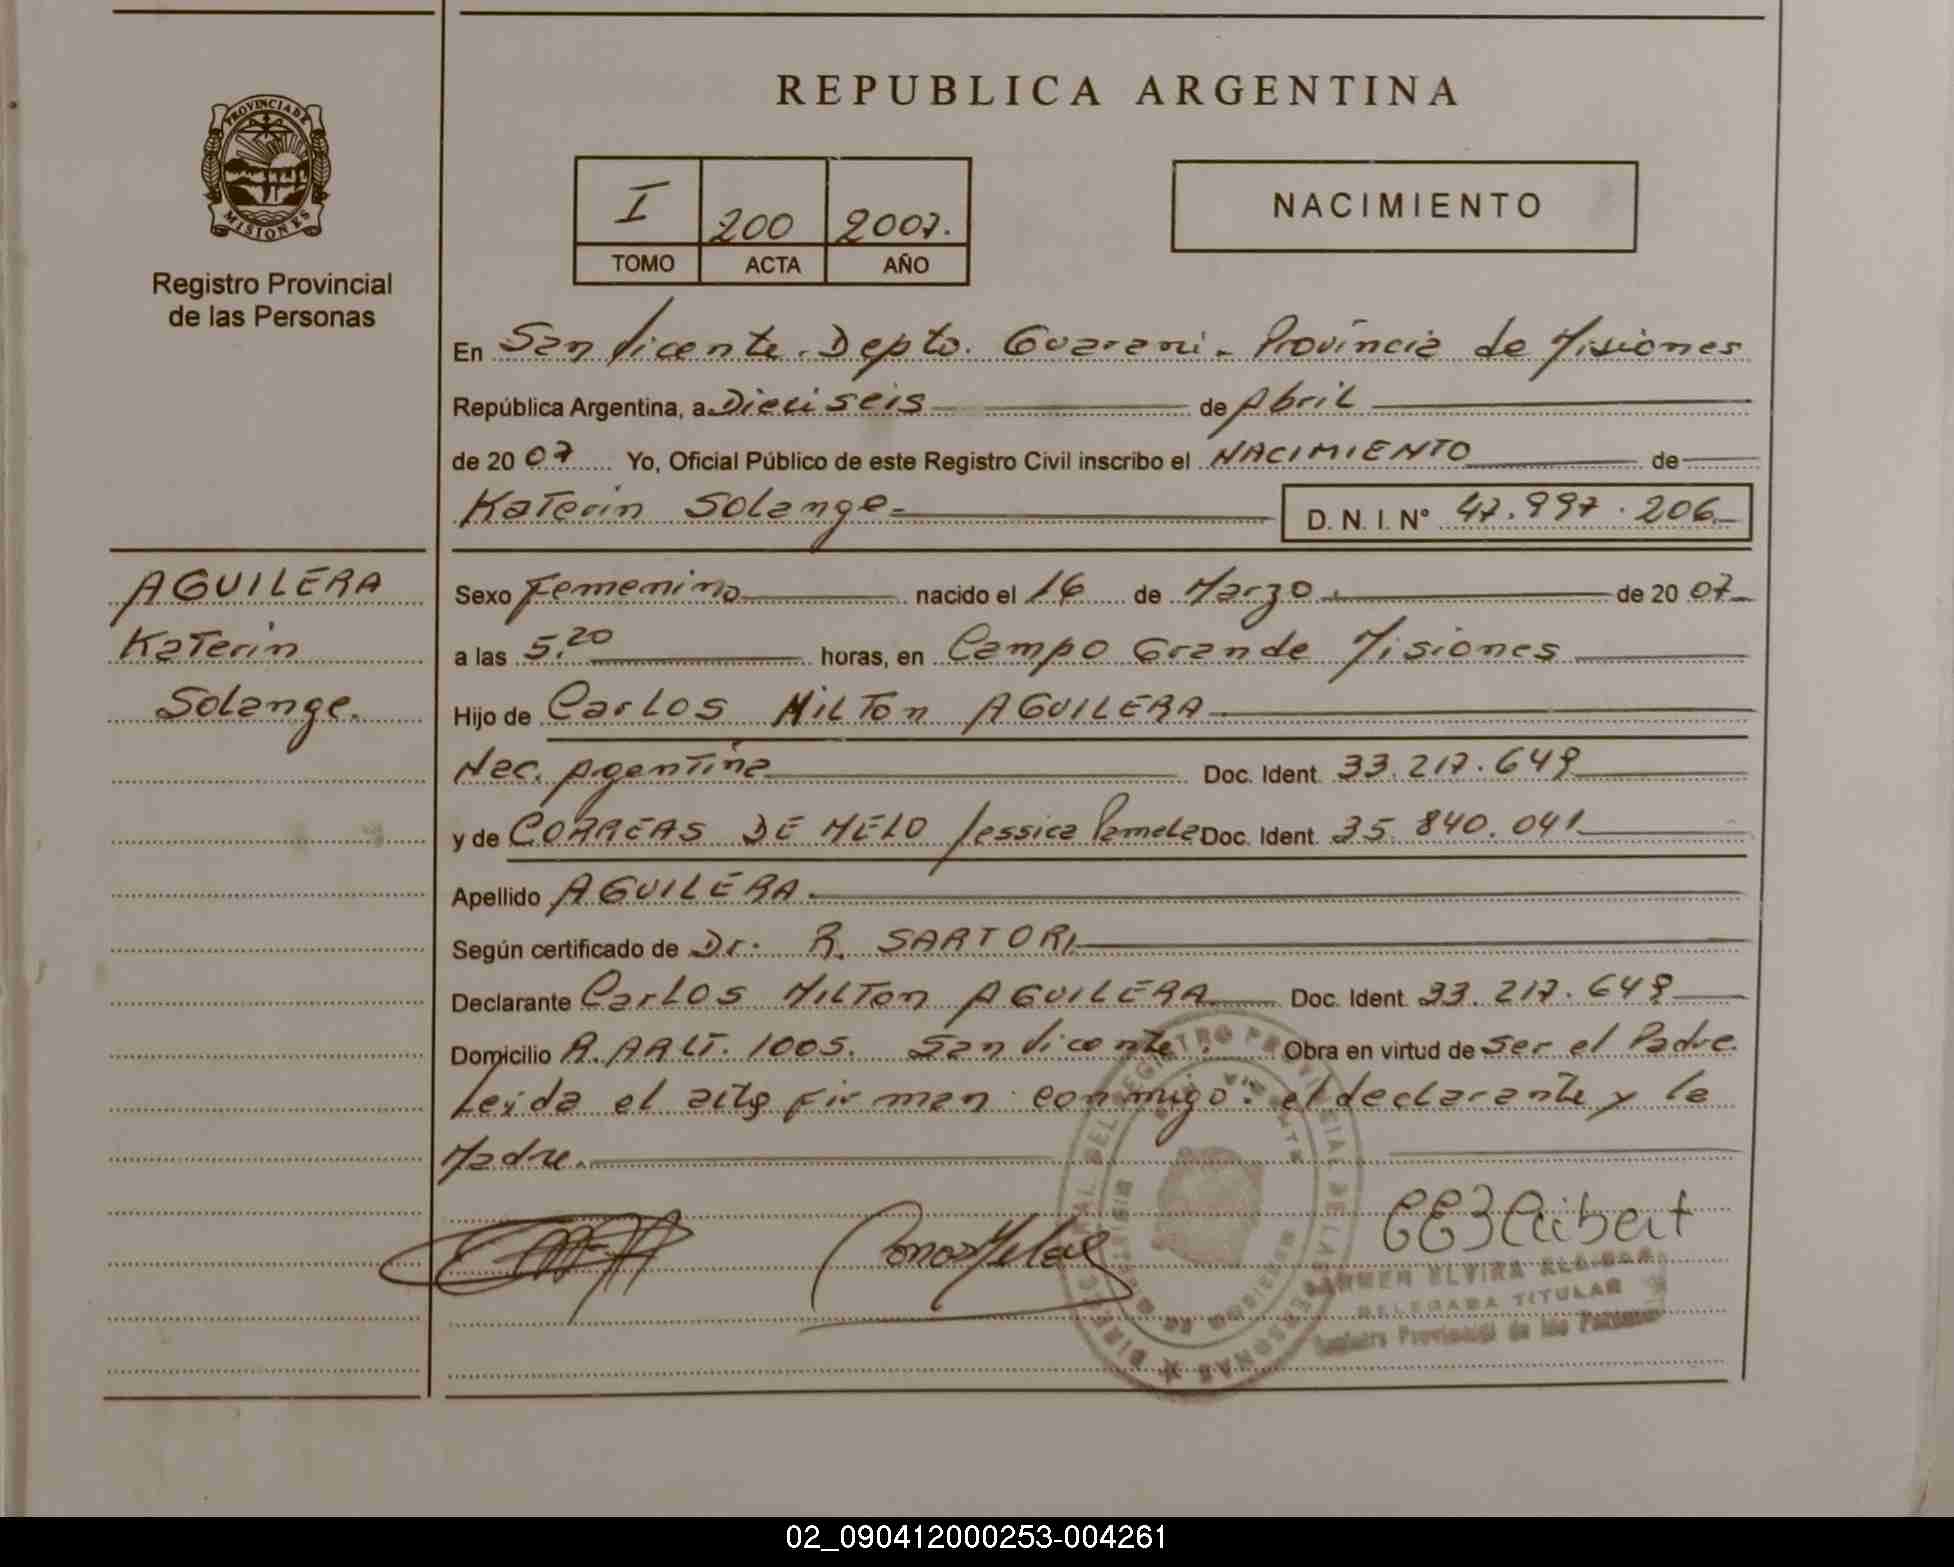 PROVINCIA DE
MISIONES
Registro Provincial
de las Personas
REPUBLICA ARGENTINA
I 200 2007.
TOMO ACTA AÑO
NACIMIENTO
En San Vicente. Depto. Guarani - Provincia de Misiones
República Argentina, a Dieciseis de Abril
de 20 07 Yo, Oficial Público de este Registro Civil inscribo el NACIMIENTO de
Katerin Solange D. N. I. Nº 47.997.206
AGUILERA
Katerin
Solange.
Sexo Femenino nacido el 16 de Marzo de 20 07
a las 5.20 horas, en Campo Grande Misiones
Hijo de Carlos Milton AGUILERA
Nac. Argentina Doc. Ident. 33.217.649
y de CORREAS DE MELO Jessica Pamela Doc. Ident. 35.840.041
Apellido AGUILERA
Según certificado de Dr. R. SARTORI
Declarante Carlos Milton AGUILERA Doc. Ident. 33.217.649
Domicilio San Vicente. Obra en virtud de ser el Padre
Leida el acta firman conmigo. el declarante y la
Madre.
CARMEN ELVIRA
DELEGADA TITULAR
Registro Provincial de las Personas
02_090412000253-004261